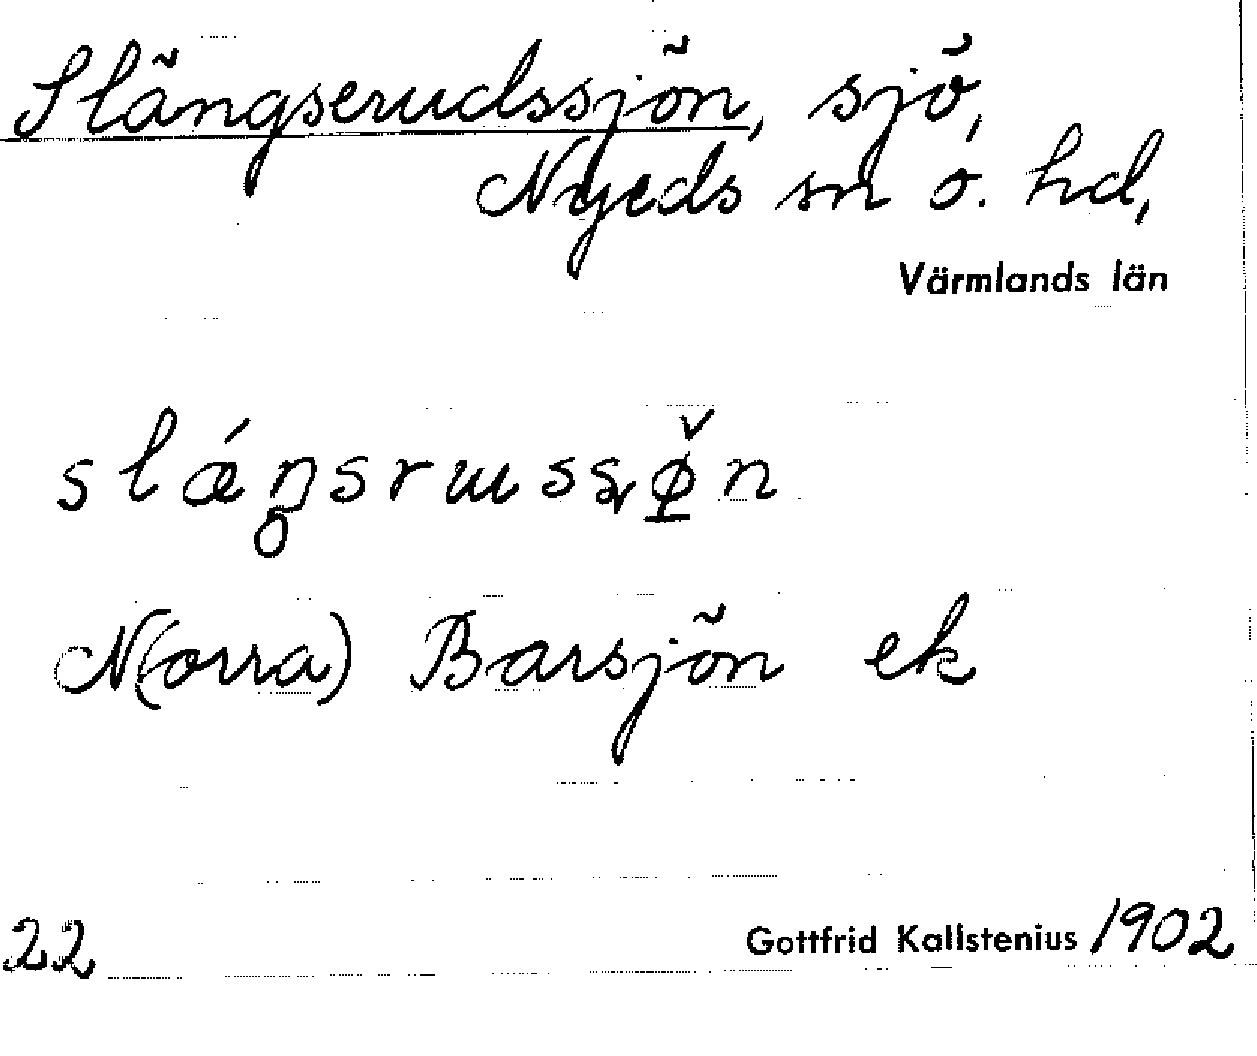 Slängserudssjön, sjö,
Nyeds sn o. hd,
Värmlands län
N(orra) Barsjön ek
22 Gottfrid Kallstenius 1902